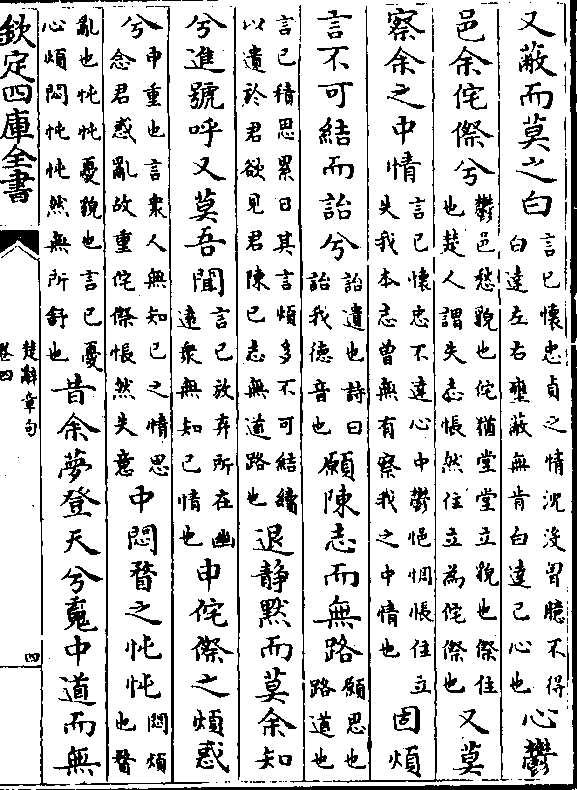 又蔽而莫之白言已懷忠貞之情沈沒胷臆不得白達左右壅蔽無肯白達已心也心鬱
邑余侘傺兮鬱邑愁貌也侘猶堂堂立貌也傺住也楚人謂失志悵然住立為侘傺也又莫
察余之中情言已懷忠不達心中鬱悒惆悵住立失我本志曾無有察我之中情也固煩
言不可結而詒兮詒遺也詩曰詒我德音也願陳志而無路願思也路道也
言已積思累日其言煩多不可結續以遺於君欲見君陳已志無道路也退静黙而莫余知
兮進號呼又莫吾聞言已放弃所在幽遠衆無知已情也申侘傺之煩惑
兮申重也言衆人無知已之情思念君惑亂故重侘傺悵然失意中悶瞀之忳忳悶煩也瞀
亂也忳忳憂貌也言已憂心煩悶忳忳然無所舒也昔余夢登天兮䰟中道而無
欽定四庫全書
楚辭章句
卷四
四